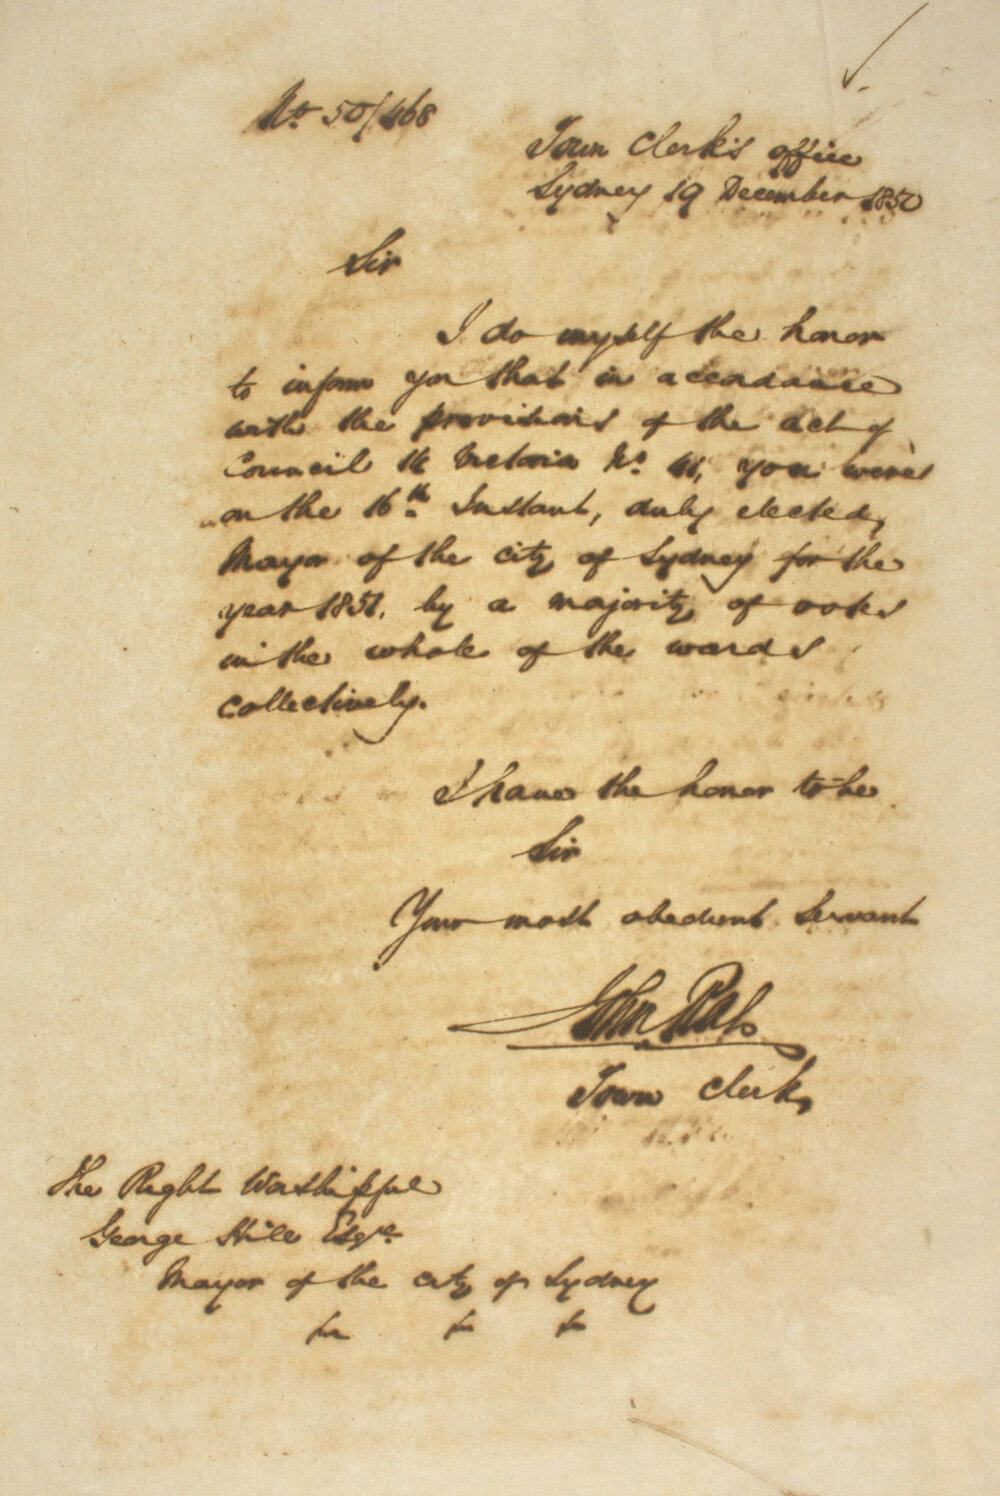 No. 50/468
Town Clerk's office
Sydney 19 December 1850
Sir
I do myself the honor
to inform you that in accordance
with the provisions of the act of
Council 14 Victoria No. 41, you were
on the 16th Instant, duly elected,
Mayor of the city of Sydney for the
year 1851, by a majority of votes
in the whole of the wards
collectively.
I have the honor to be
Sir
Your most obedient Servant
John
Town Clerk,
The Right Worshipful
George Hill Esqre
Mayor of the city of Sydney